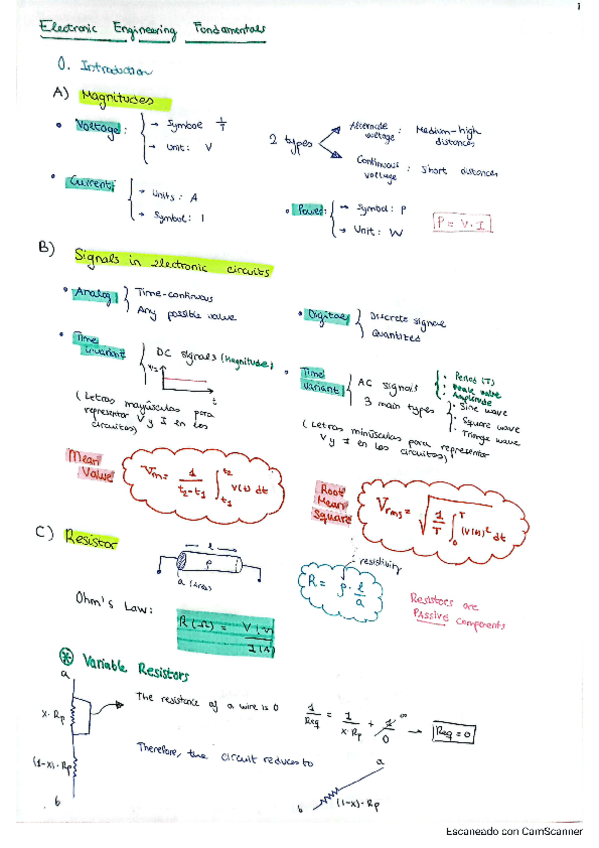 1
Electronic Engineering Fundamentals
0. Introduction
A) Magnitudes
• Voltage: → Symbol
→ Unit: V
2 types
Alternate voltage: Medium-high distances
Continuous voltage: Short distances
• Current: → Units: A
→ Symbol: I
• Power: → Symbol: P
→ Unit: W
P = V · I
B) Signals in electronic circuits
• Analog Time-continuous
Any possible value
• Digital Discrete signal
Quantized
• Time invariant DC signals (Magnitude)
t
(Letras mayúsculas para
representar V y I en los
circuitos)
• Time variant AC signals
3 main types
• Period (T)
• Peak value
• Amplitude
• Sine wave
• Square wave
• Triange wave
(Letras minúsculas para representar
V y I en los circuitos)
Mean Value
Vm = 1/(t2-t1) ∫t1 t2 v(t) dt
Root Mean Square
Vrms = √(1/T ∫0 T (v(t))² dt)
C) Resistor
l
ρ
a (Area)
resistivity
R = ρ · l/a
Resistors are
PASSIVE components
Ohm's Law:
R(Ω) = V(V)/I(A)
* Variable Resistors
a
x · Rp
(1-x) · Rp
b
The resistance of a wire is 0
1/Req = 1/(x · Rp) + 1/0 ∞ → Req = 0
Therefore, the circuit reduces to
a
b
(1-x) · Rp
Escaneado con CamScanner